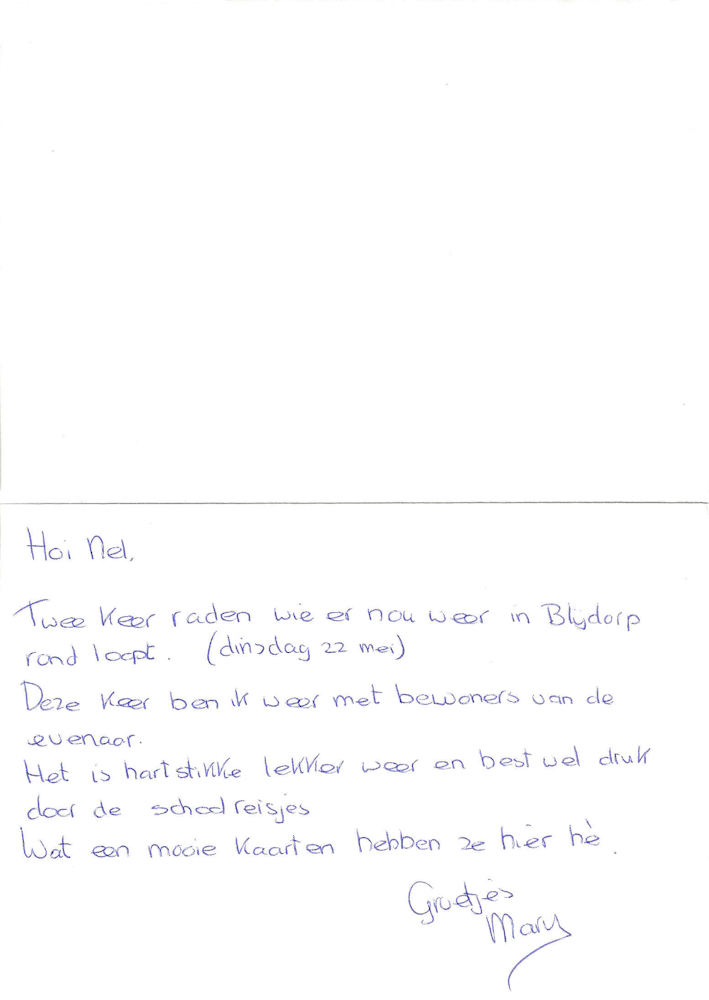 Hoi Nel,
Twee keer raden wie er nou weer in Blijdorp
rond loopt. (dinsdag 22 mei)
Deze keer ben ik weer met bewoners van de
evenaar.
Het is hartstikke lekker weer en best wel druk
door de schoolreisjes
Wat een mooie kaarten hebben ze hier hè.
Groetjes
Mary